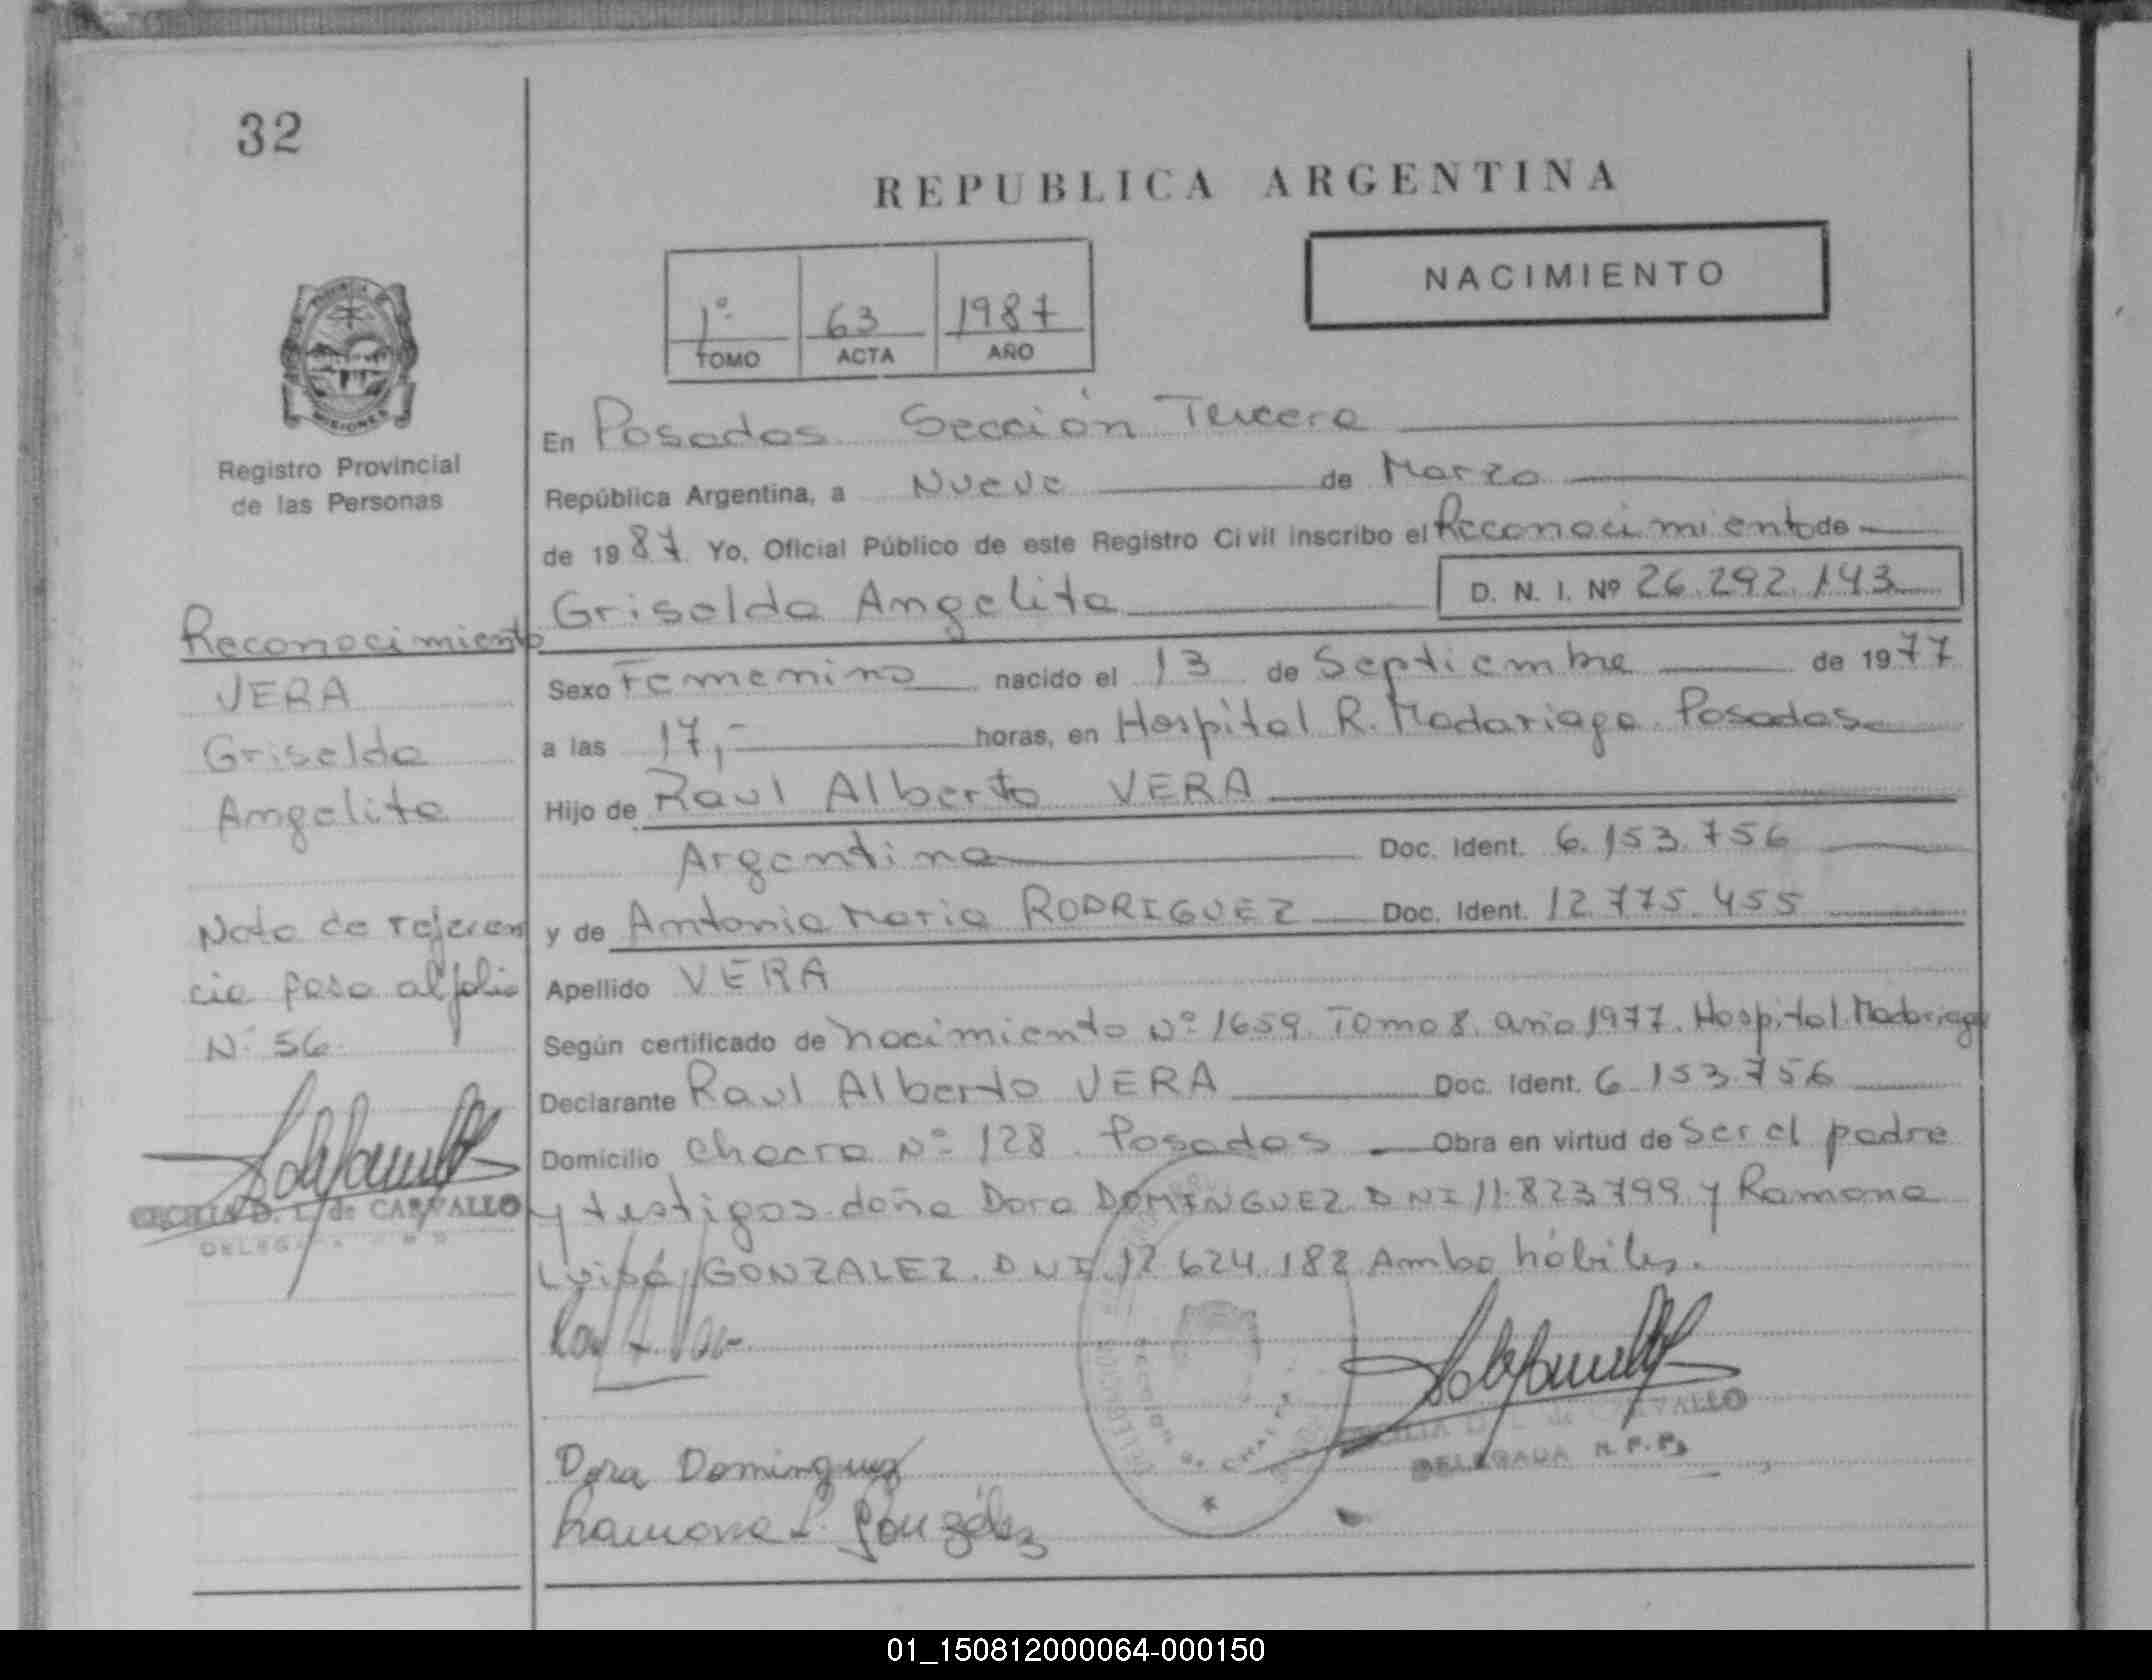 32
REPUBLICA ARGENTINA
NACIMIENTO
1º 63 1987
TOMO ACTA AÑO
Registro Provincial
de las Personas
En Posadas Sección Tercera
República Argentina, a Nueve de Marzo
de 1987. Yo, Oficial Público de este Registro Civil inscribo el Reconocimiento de
Griselda Angelita D. N. I. Nº 26.292.143
Sexo Femenino nacido el 13 de Septiembre de 1977
a las 17,- horas, en Hospital R. Madariaga Posadas
Hijo de Raul Alberto VERA
Argentina Doc. Ident. 6.153.756
y de Antonia Maria RODRIGUEZ Doc. Ident. 12.775.455
Apellido VERA
Según certificado de nacimiento Nº 1659. Tomo 8. año 1977. Hospital Madariaga
Declarante Raul Alberto VERA Doc. Ident. 6.153.756
Domicilio Chacra Nº 128. Posadas Obra en virtud de Ser el padre
y testigos doña Dora DOMINGUEZ DNI 11.823.799 y Ramona
Luisa GONZALEZ. DNI. 12.624.182 Ambo hábiles.
Dora Dominguez
Ramona L. González
DELEGADA R.P.P.
Reconocimiento
VERA
Griselda
Angelita
Nota de referen
cia pasa al folio
Nº 56
CECILIA D. L. de CARVALLO
01_150812000064-000150